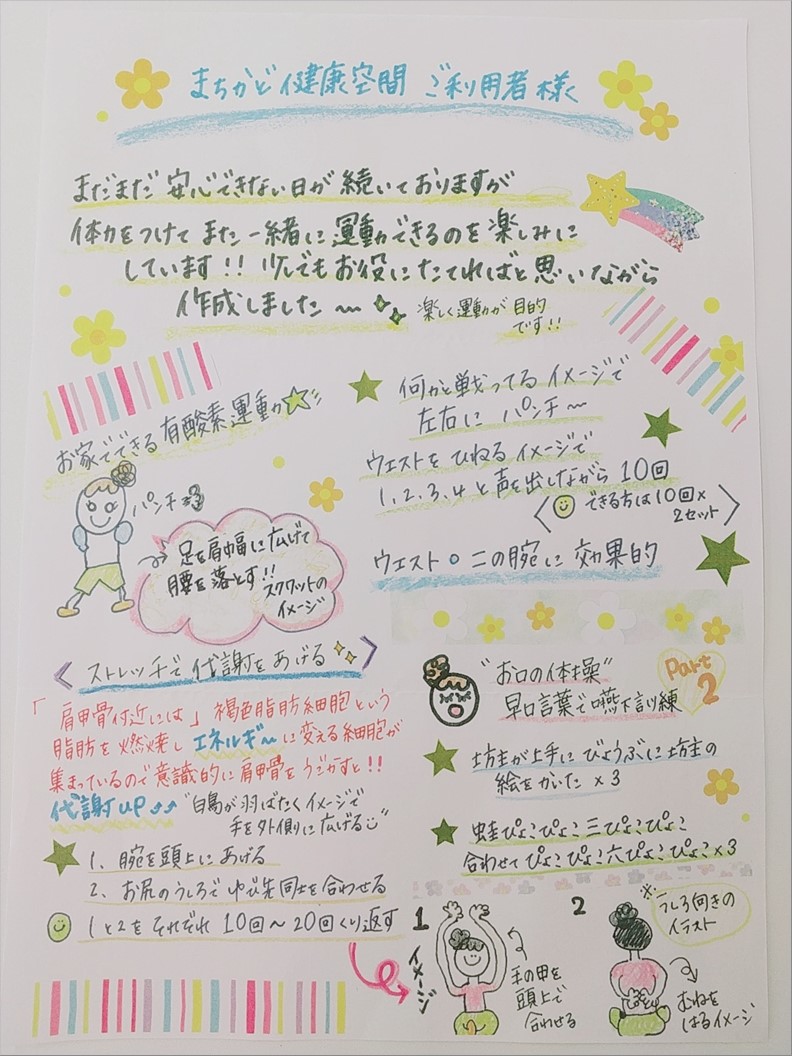 まちかど健康空間 ご利用者様へ
まだまだ安心できない日が続いておりますが
体力をつけてまた一緒に運動できるのを楽しみに
しています!! 少しでもお役にたてればと思いながら
作成しました〜
楽しく運動が目的
です!!
お家でできる有酸素運動
パンチ
足を肩幅に広げて
腰を落とす!!
スクワットの
イメージ
何かと戦ってるイメージで
左右にパンチ〜
ウェストをひねるイメージで
1、2、3、4と声を出しながら10回
できる方は10回×
2セット
ウエスト。二の腕に効果的
ストレッチで代謝をあげる
「肩甲骨付近には」褐色脂肪細胞という
脂肪を燃焼しエネルギーに変える細胞が
集まっているので意識的に肩甲骨をうごかすと!!
代謝up
"白鳥が羽ばたくイメージで
手を外側に広げる"
1、腕を頭上にあげる
2、お尻のうしろでゆび先同士を合わせる
1と2をそれぞれ10回〜20回くり返す
"お口の体操"
Part
2
早口言葉で嚥下訓練
坊主が上手にびょうぶに坊主の
絵をかいた×3
蛙ぴょこぴょこ三ぴょこぴょこ
合わせてぴょこぴょこ六ぴょこぴょこ×3
1
イメージ
手の甲を
頭上で
合わせる
2
※うしろ向きの
イラスト
むねを
はるイメージ